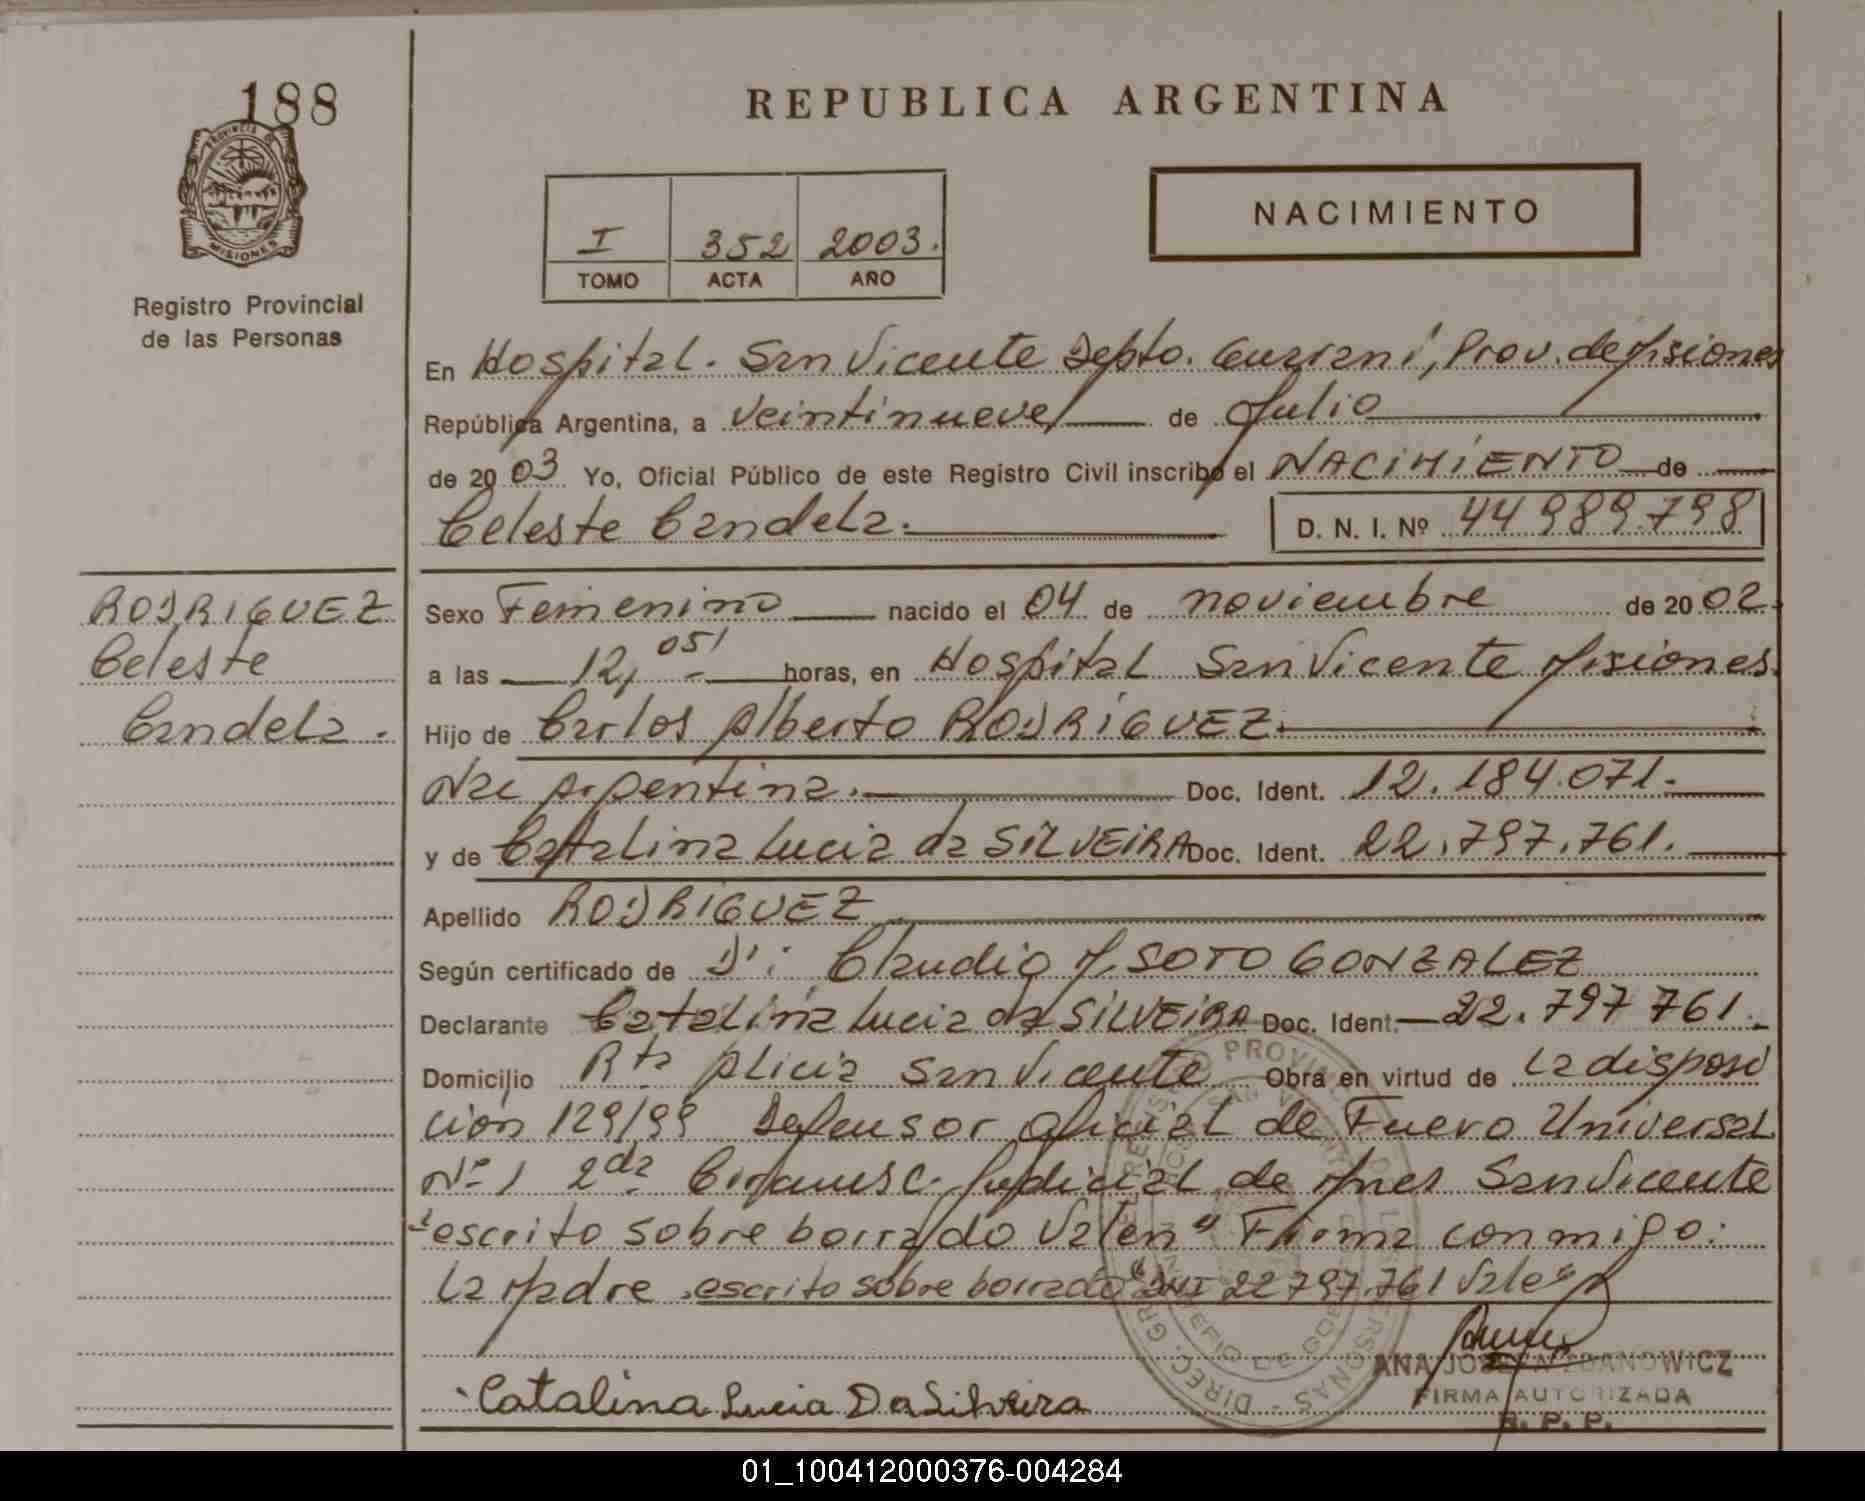 188
PROVINCIA DE
MISIONES
Registro Provincial
de las Personas
REPUBLICA ARGENTINA
I 352 2003.
TOMO ACTA AÑO
NACIMIENTO
En Hospital. San Vicente Depto. Guaraní, Prov. de Misiones
República Argentina, a veintinueve de Julio
de 2003 Yo, Oficial Público de este Registro Civil inscribo el NACIMIENTO de
Celeste Candela. D. N. I. Nº 44 989.798
RODRIGUEZ
Celeste
Candela.
Sexo Femenino nacido el 04 de noviembre de 2002.
a las 12, 05' horas, en Hospital San Vicente Misiones.
Hijo de Carlos Alberto RODRIGUEZ.
Nac Argentina. Doc. Ident. 12.184.071.
y de Catalina Lucia da SILVEIRA Doc. Ident. 22.797.761.
Apellido RODRIGUEZ
Según certificado de Claudio M. SOTO GONZALEZ
Declarante Catalina Lucia da SILVEIRA Doc. Ident. 22.797 761.
Domicilio Rta Alicia San Vicente Obra en virtud de la disposi
ción 129/99 Defensor Oficial de Fuero Universal
Nº 1 2da Circunsc. Judicial de Mnes San Vicente
"escrito sobre borrado Valen" Firma conmigo:
La Madre. escrito sobre borrado "DNI 22 797.761 Vale"
Catalina Lucia Da Silveira
FIRMA AUTORIZADA
R. P. P.
01_100412000376-004284